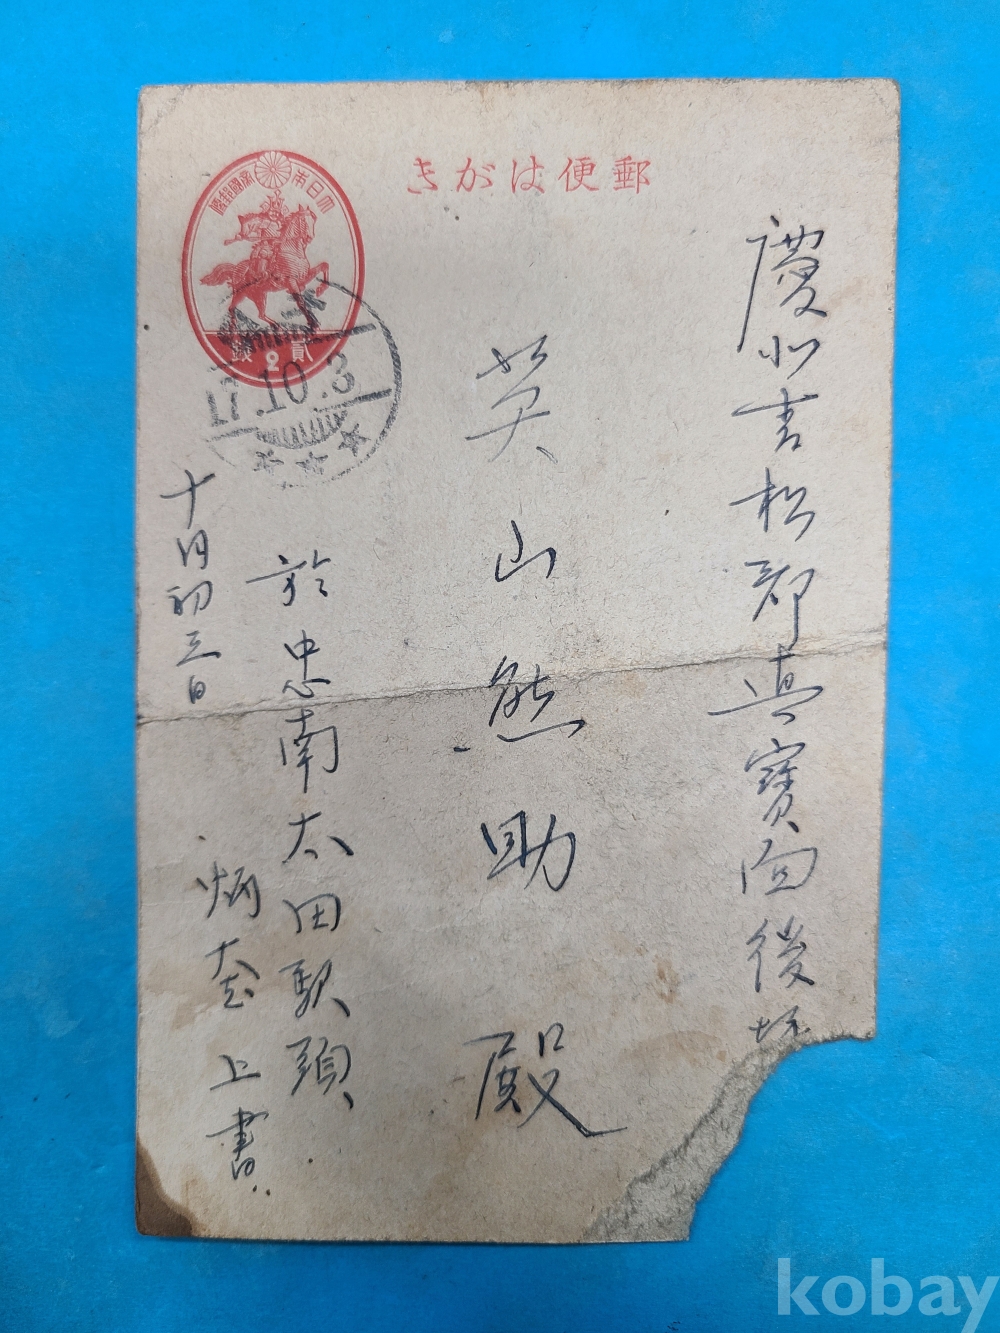 郵便はがき
大日本帝國郵便
貳2銭
17.10.3
慶北青松郡真寶面後坪
英山熊助殿
於忠南太田駅頭
炳奎上書
十月初三日
kobay